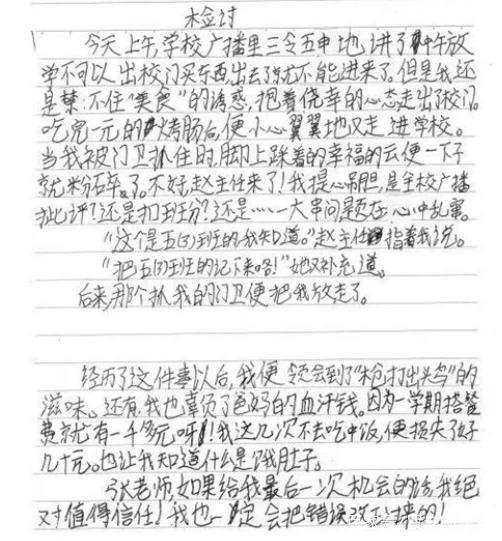 检讨
今天上午,学校广播里三令五申地讲了中午放
学不可以出校门买东西,出去了就不能进来了。但是我还
是禁不住“美食”的诱惑,抱着侥幸的心态走出了校门。
吃完一元的烤肠后,便小心翼翼地又走进学校。
当我被门卫抓住时,脚上踩着的幸福的云便一下子
就粉碎了。不好,赵主任来了!我提心吊胆,是全校广播
批评?还是扣班分?还是……一大串问题在心中乱窜。
“这个是五(3)班的我知道。”赵主任指着我说。
“把五(3)班的记下来咯!”她又补充道。
后来,那个抓我的门卫便把我放走了。
经历了这件事以后,我便领会到了“枪打出头鸟”的
滋味。还有,我也辜负了爸妈的血汗钱。因为一学期搭餐
费就有一千多元呀!我这几次不去吃中饭,便损失了好
几十元。也让我知道什么是饿肚子。
张老师,如果给我最后一次机会的话,我绝
对值得信任!我也一定会把错误改过来的!